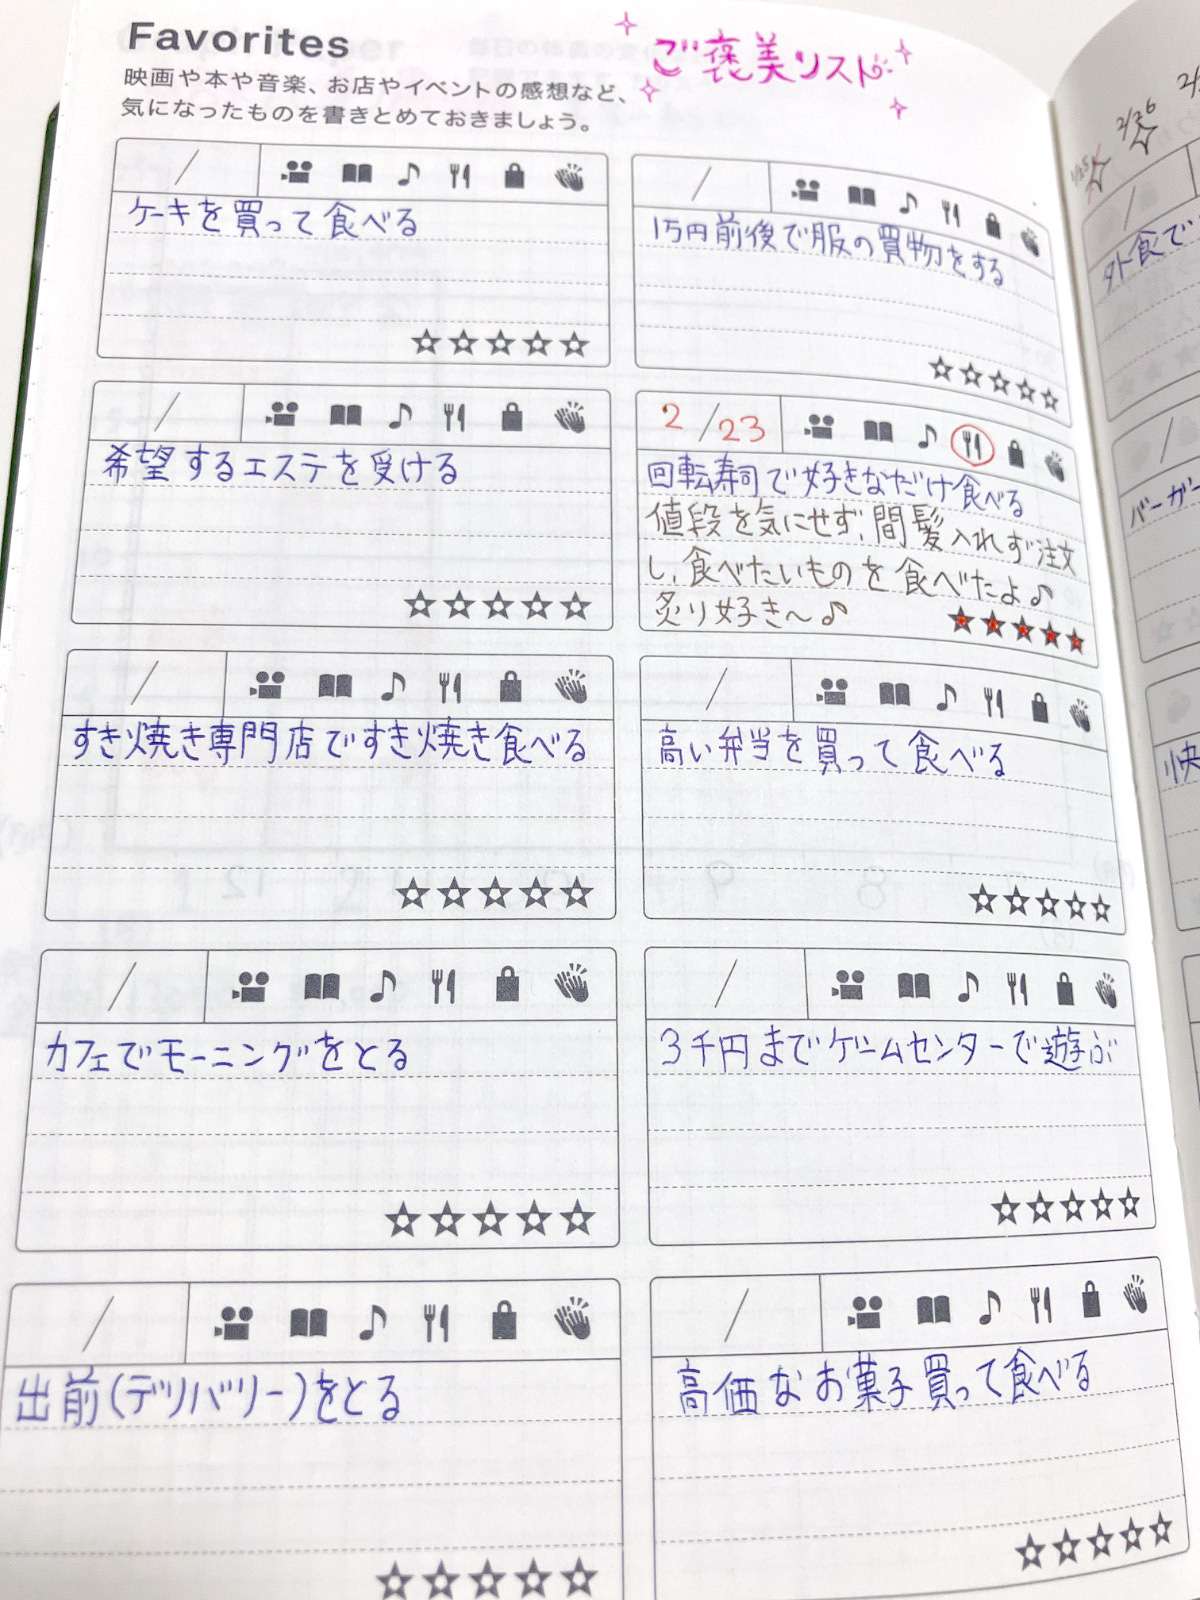 Favorites
ご褒美リスト
映画や本や音楽、お店やイベントの感想など、
気になったものを書きとめておきましょう。
/
ケーキを買って食べる
/
1万円前後で服の買物をする
/
希望するエステを受ける
2/23
回転寿司で好きなだけ食べる
値段を気にせず、間髪入れず注文
し、食べたいものを食べたよ♪
炙り好き〜♪
/
すき焼き専門店ですき焼き食べる
/
高い弁当を買って食べる
/
カフェでモーニングをとる
/
3千円までゲームセンターで遊ぶ
/
出前(デリバリー)をとる
/
高価なお菓子買って食べる
2/26
外食で
バーガー
快